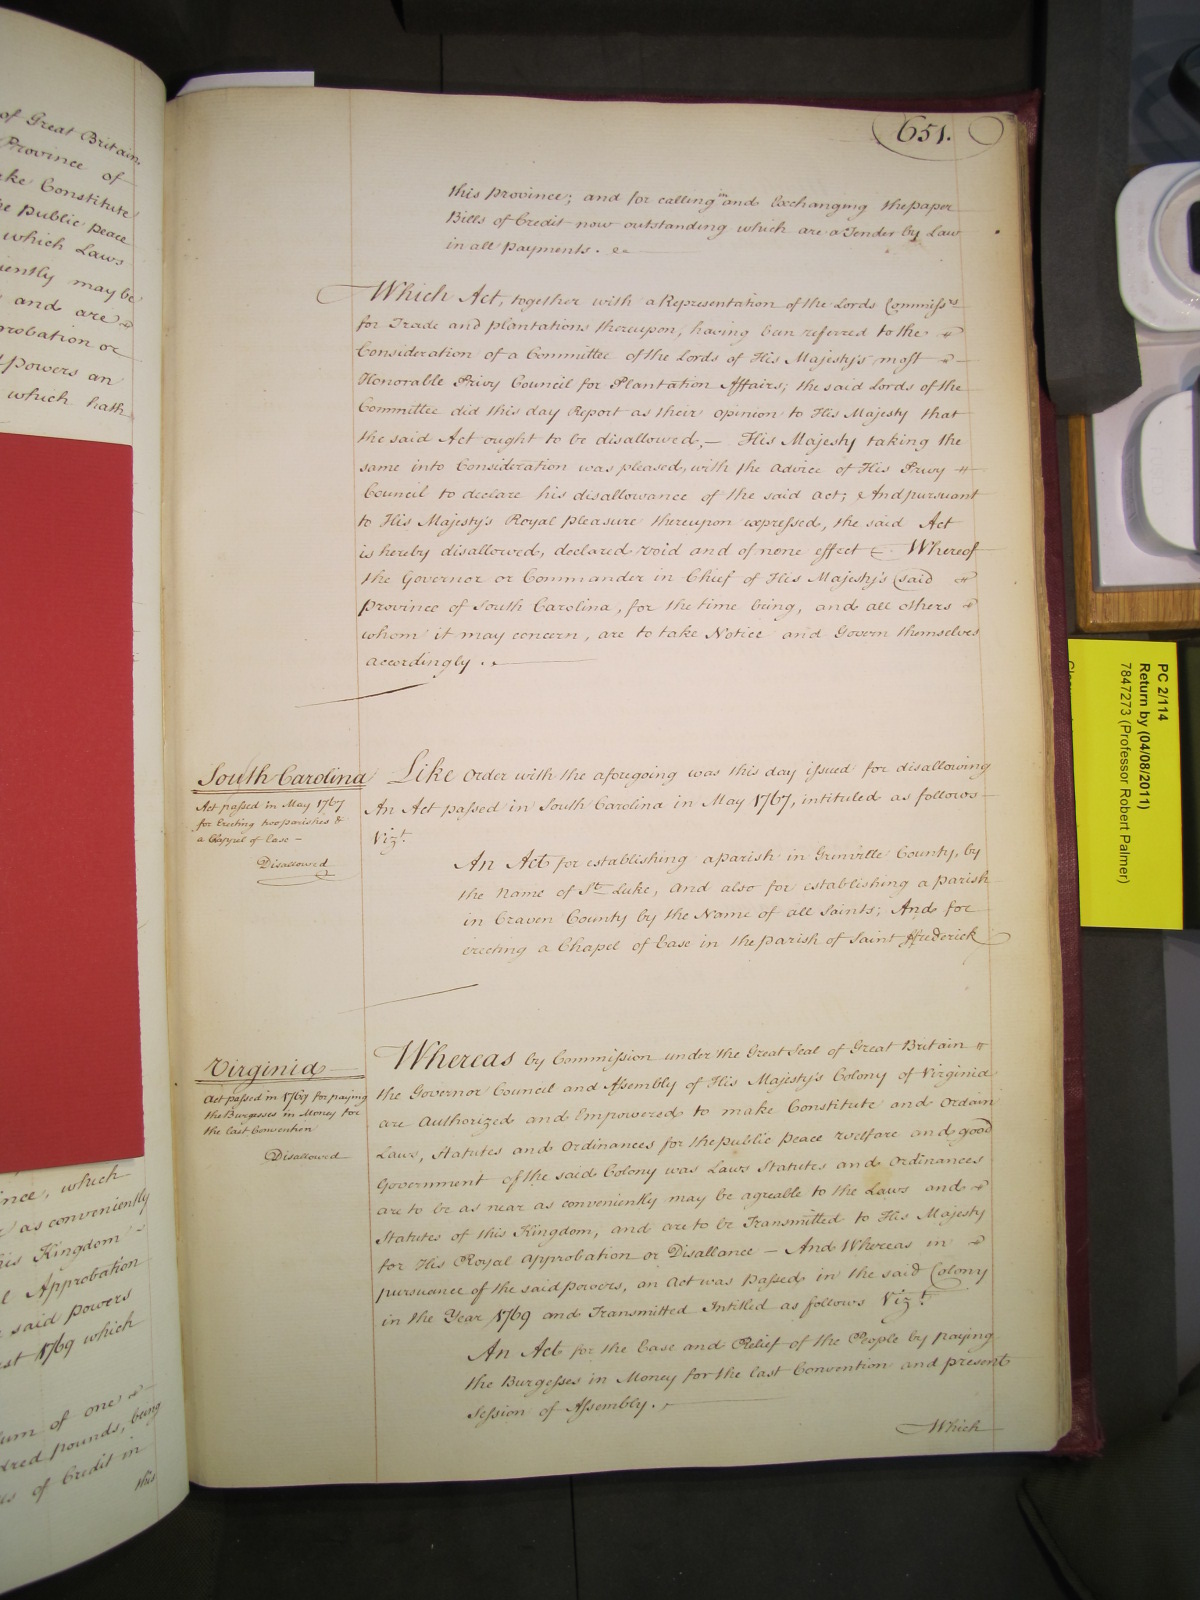 of Great Britain,
Province of
ke Constitute
he public peace
which Laws
iently may be
and are
probation or
powers an
which hath
nce, which
as conveniently
his Kingdom
l Approbation
said powers
st 1769 which
um of one
dred pounds, being
es of Credit in
this
651.
this Province; and for calling in and Exchanging the paper
Bills of Credit now outstanding which are a Tender by Law
in all payments. &c
Which Act, together with a Representation of the Lords Commissrs
for Trade and plantations thereupon, having been referred to the
Consideration of a Committee of the Lords of His Majesty's most
Honorable Privy Council for Plantation Affairs; the said Lords of the
Committee did this day Report as their opinion to His Majesty that
the said Act ought to be disallowed,— His Majesty taking the
same into Consideration was pleased, with the advice of His Privy
Council to declare his disallowance of the said Act; & And pursuant
to His Majesty's Royal pleasure thereupon expressed, the said Act
is hereby disallowed, declared void and of none effect Whereof
the Governor or Commander in Chief of His Majesty's said
Province of South Carolina, for the time being, and all others
whom it may concern, are to take Notice and Govern themselves
accordingly.
South Carolina
Act passed in May 1767
for Erecting two parishes &
a Chappel of Ease —
Disallowed
Like Order with the aforegoing was this day issued for disallowing
An Act passed in South Carolina in May 1767, intituled as follows
Vizt.
An Act for establishing a parish in Grenville County, by
the Name of St. Luke, and also for establishing a parish
in Craven County by the Name of all Saints; And for
erecting a Chapel of Ease in the parish of Saint Frederick
Virginia
Act passed in 1769 for paying
the Burgesses in Money for
the last Convention
Disallowed
Whereas by Commission under the Great Seal of Great Britain
the Governor Council and Assembly of His Majesty's Colony of Virginia
are Authorized and Empowered to make Constitute and Ordain
Laws, Statutes and Ordinances for the public peace welfare and good
Government of the said Colony was Laws Statutes and Ordinances
are to be as near as conveniently may be agreable to the Laws and
Statutes of this Kingdom, and are to be Transmitted to His Majesty
for His Royal Approbation or Disallance — And Whereas in
pursuance of the said powers, an Act was passed in the said Colony
in the Year 1769 and Transmitted Intitled as follows Vizt.
An Act for the Ease and Relief of the People by paying
the Burgesses in Money for the last Convention and present
Session of Assembly.
Which
PC 2/114
Return by (04/08/2011)
7847273 (Professor Robert Palmer)